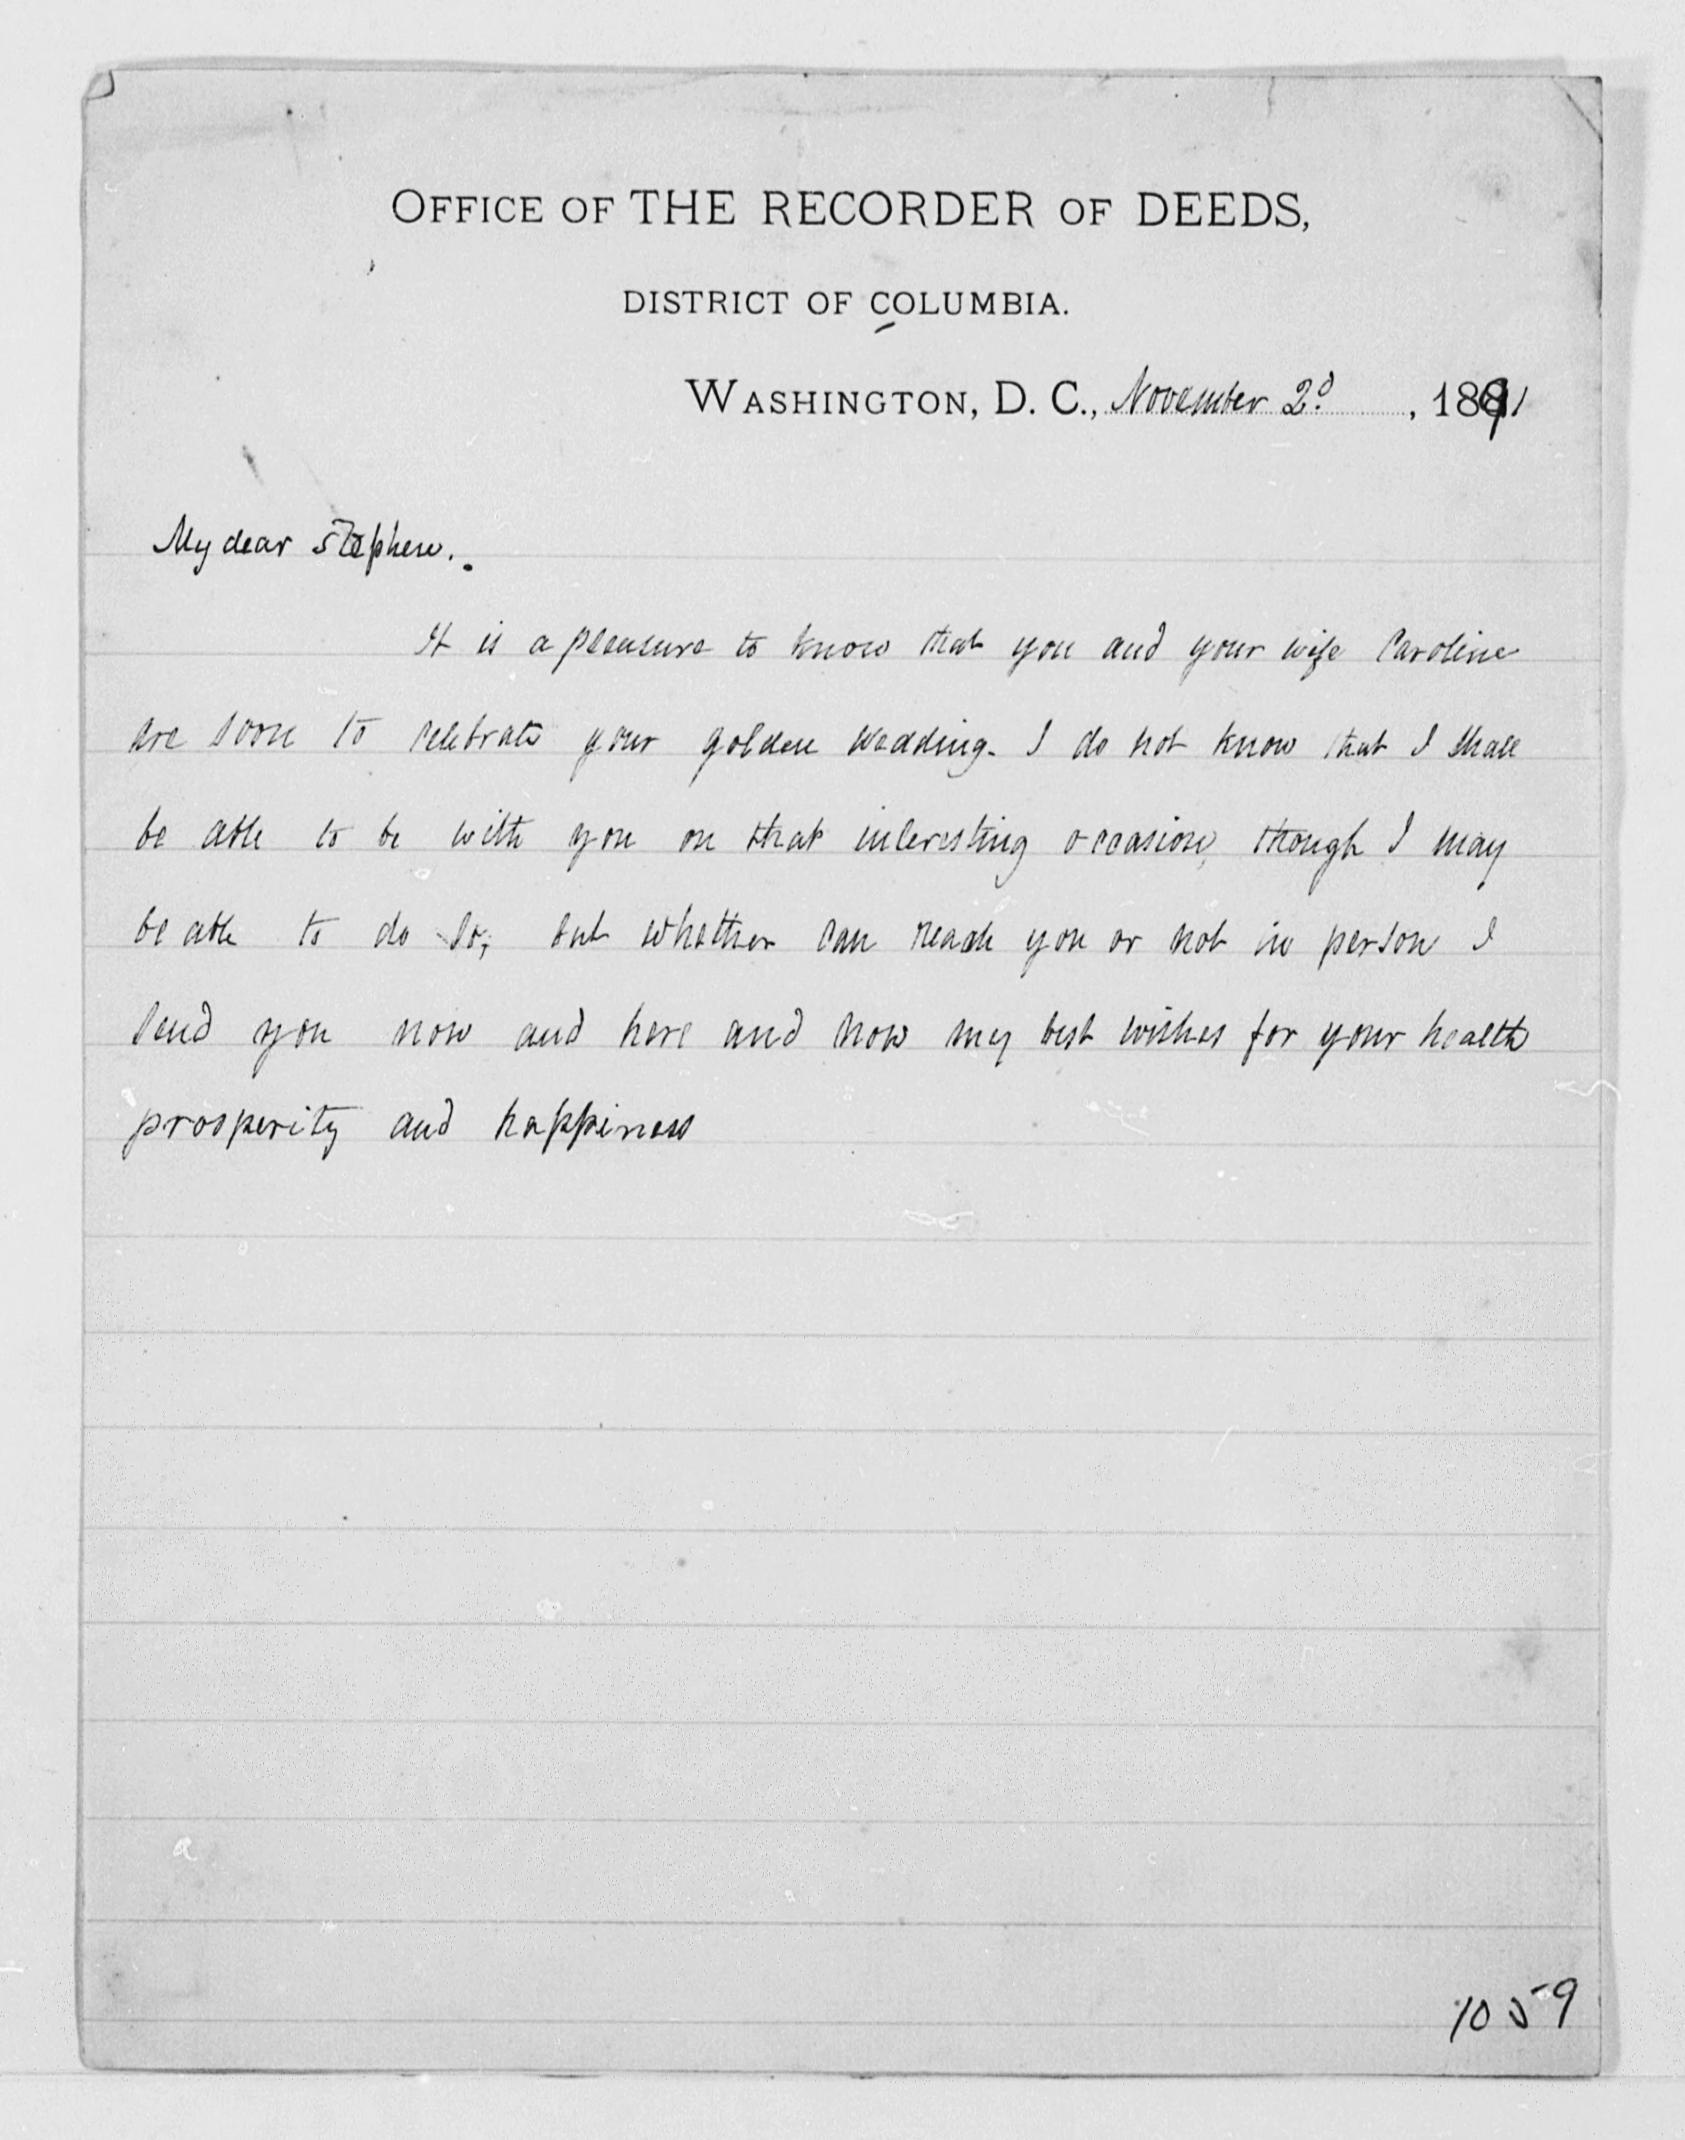 OFFICE OF THE RECORDER OF DEEDS,
DISTRICT OF COLUMBIA.
WASHINGTON, D. C., November 2d, 1891
My dear Stephen.
It is a pleasure to know that you and your wife Caroline
are soon to celebrate your golden wedding. I do not know that I shall
be able to be with you on that interesting occasion, though I may
be able to do so; but whether can reach you or not in person I
send you now and here and now my best wishes for your health
prosperity and happiness
1059